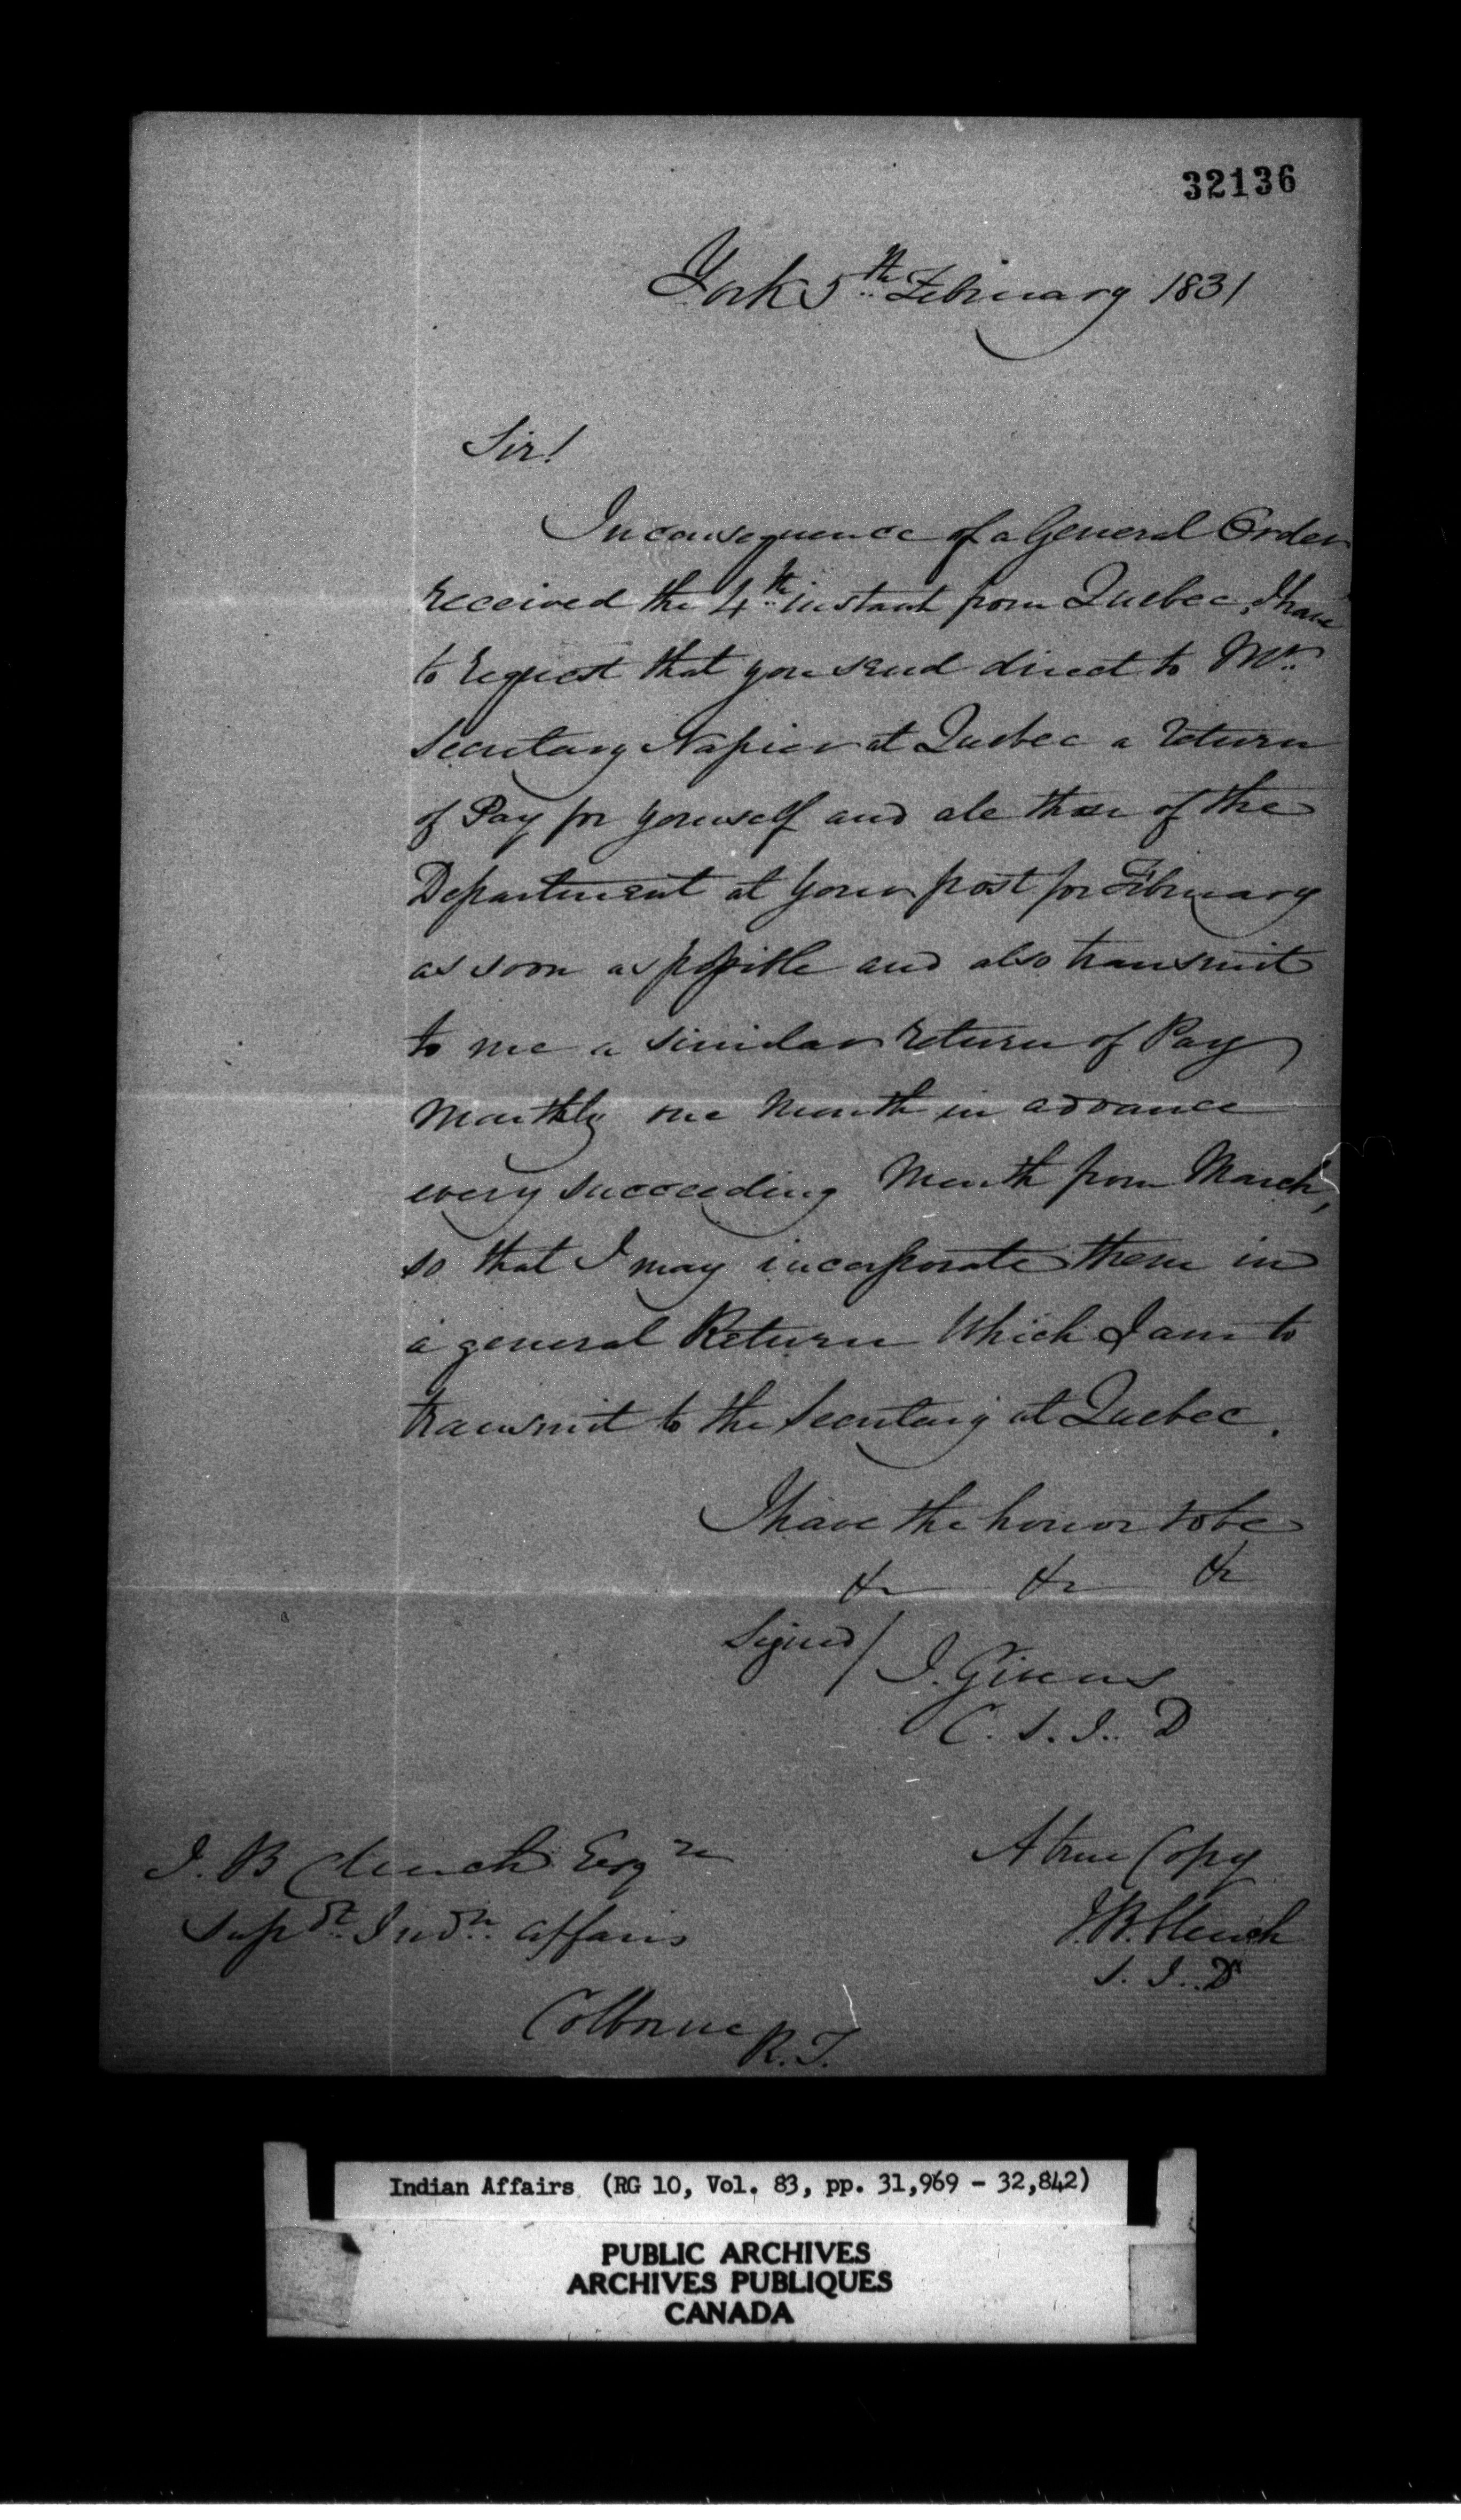 32136
York 5th February 1831
Sir!
In consequence of a General Order
received the 4th instant from Quebec, I have
to request that you send direct to Mr
Secretary Napier at Quebec a return
of Pay for yourself and all those of the
Department at your post for February
as soon as possible and also transmit
to me a similar return of Pay
Monthly one Month in advance
every succeeding Month from March,
so that I may incorporate them in
a general Return Which I am to
transmit to the Secretary at Quebec.
I have the honor to be
&c &c &c
Signed / J. Givens
C. S. I. D
J. B Clench Esqre
Supdt Indn affairs
Colborne
R. T.
A true Copy
J. B. Clench
S. I. D
Indian Affairs (RG 10, Vol. 83, pp. 31,969 - 32,842)
PUBLIC ARCHIVES
ARCHIVES PUBLIQUES
CANADA